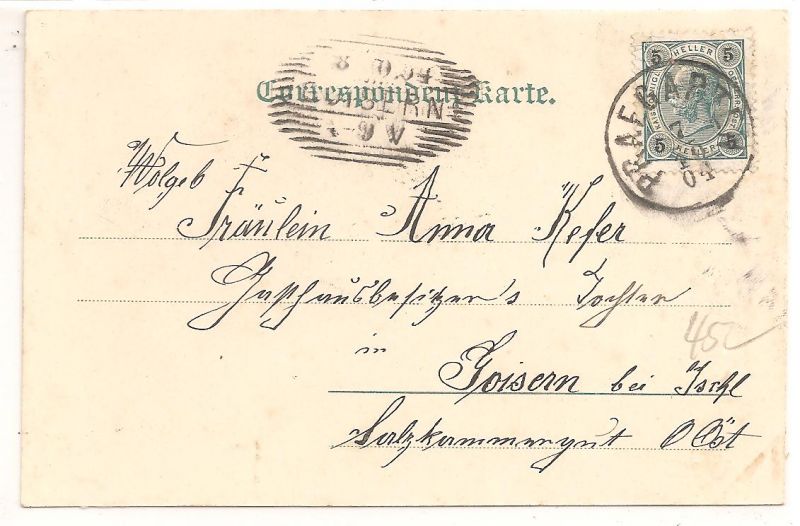 Correspondenz-Karte.
8 04
GOISERN
5 HELLER 5
5 HELLER 5
PRAEGART
7
04
Wolgeb
Fräulein Anna Kefer
Gasthausbesitzer's Tochter
in
Goisern bei Ischl
Salzkammergut OÖst
45